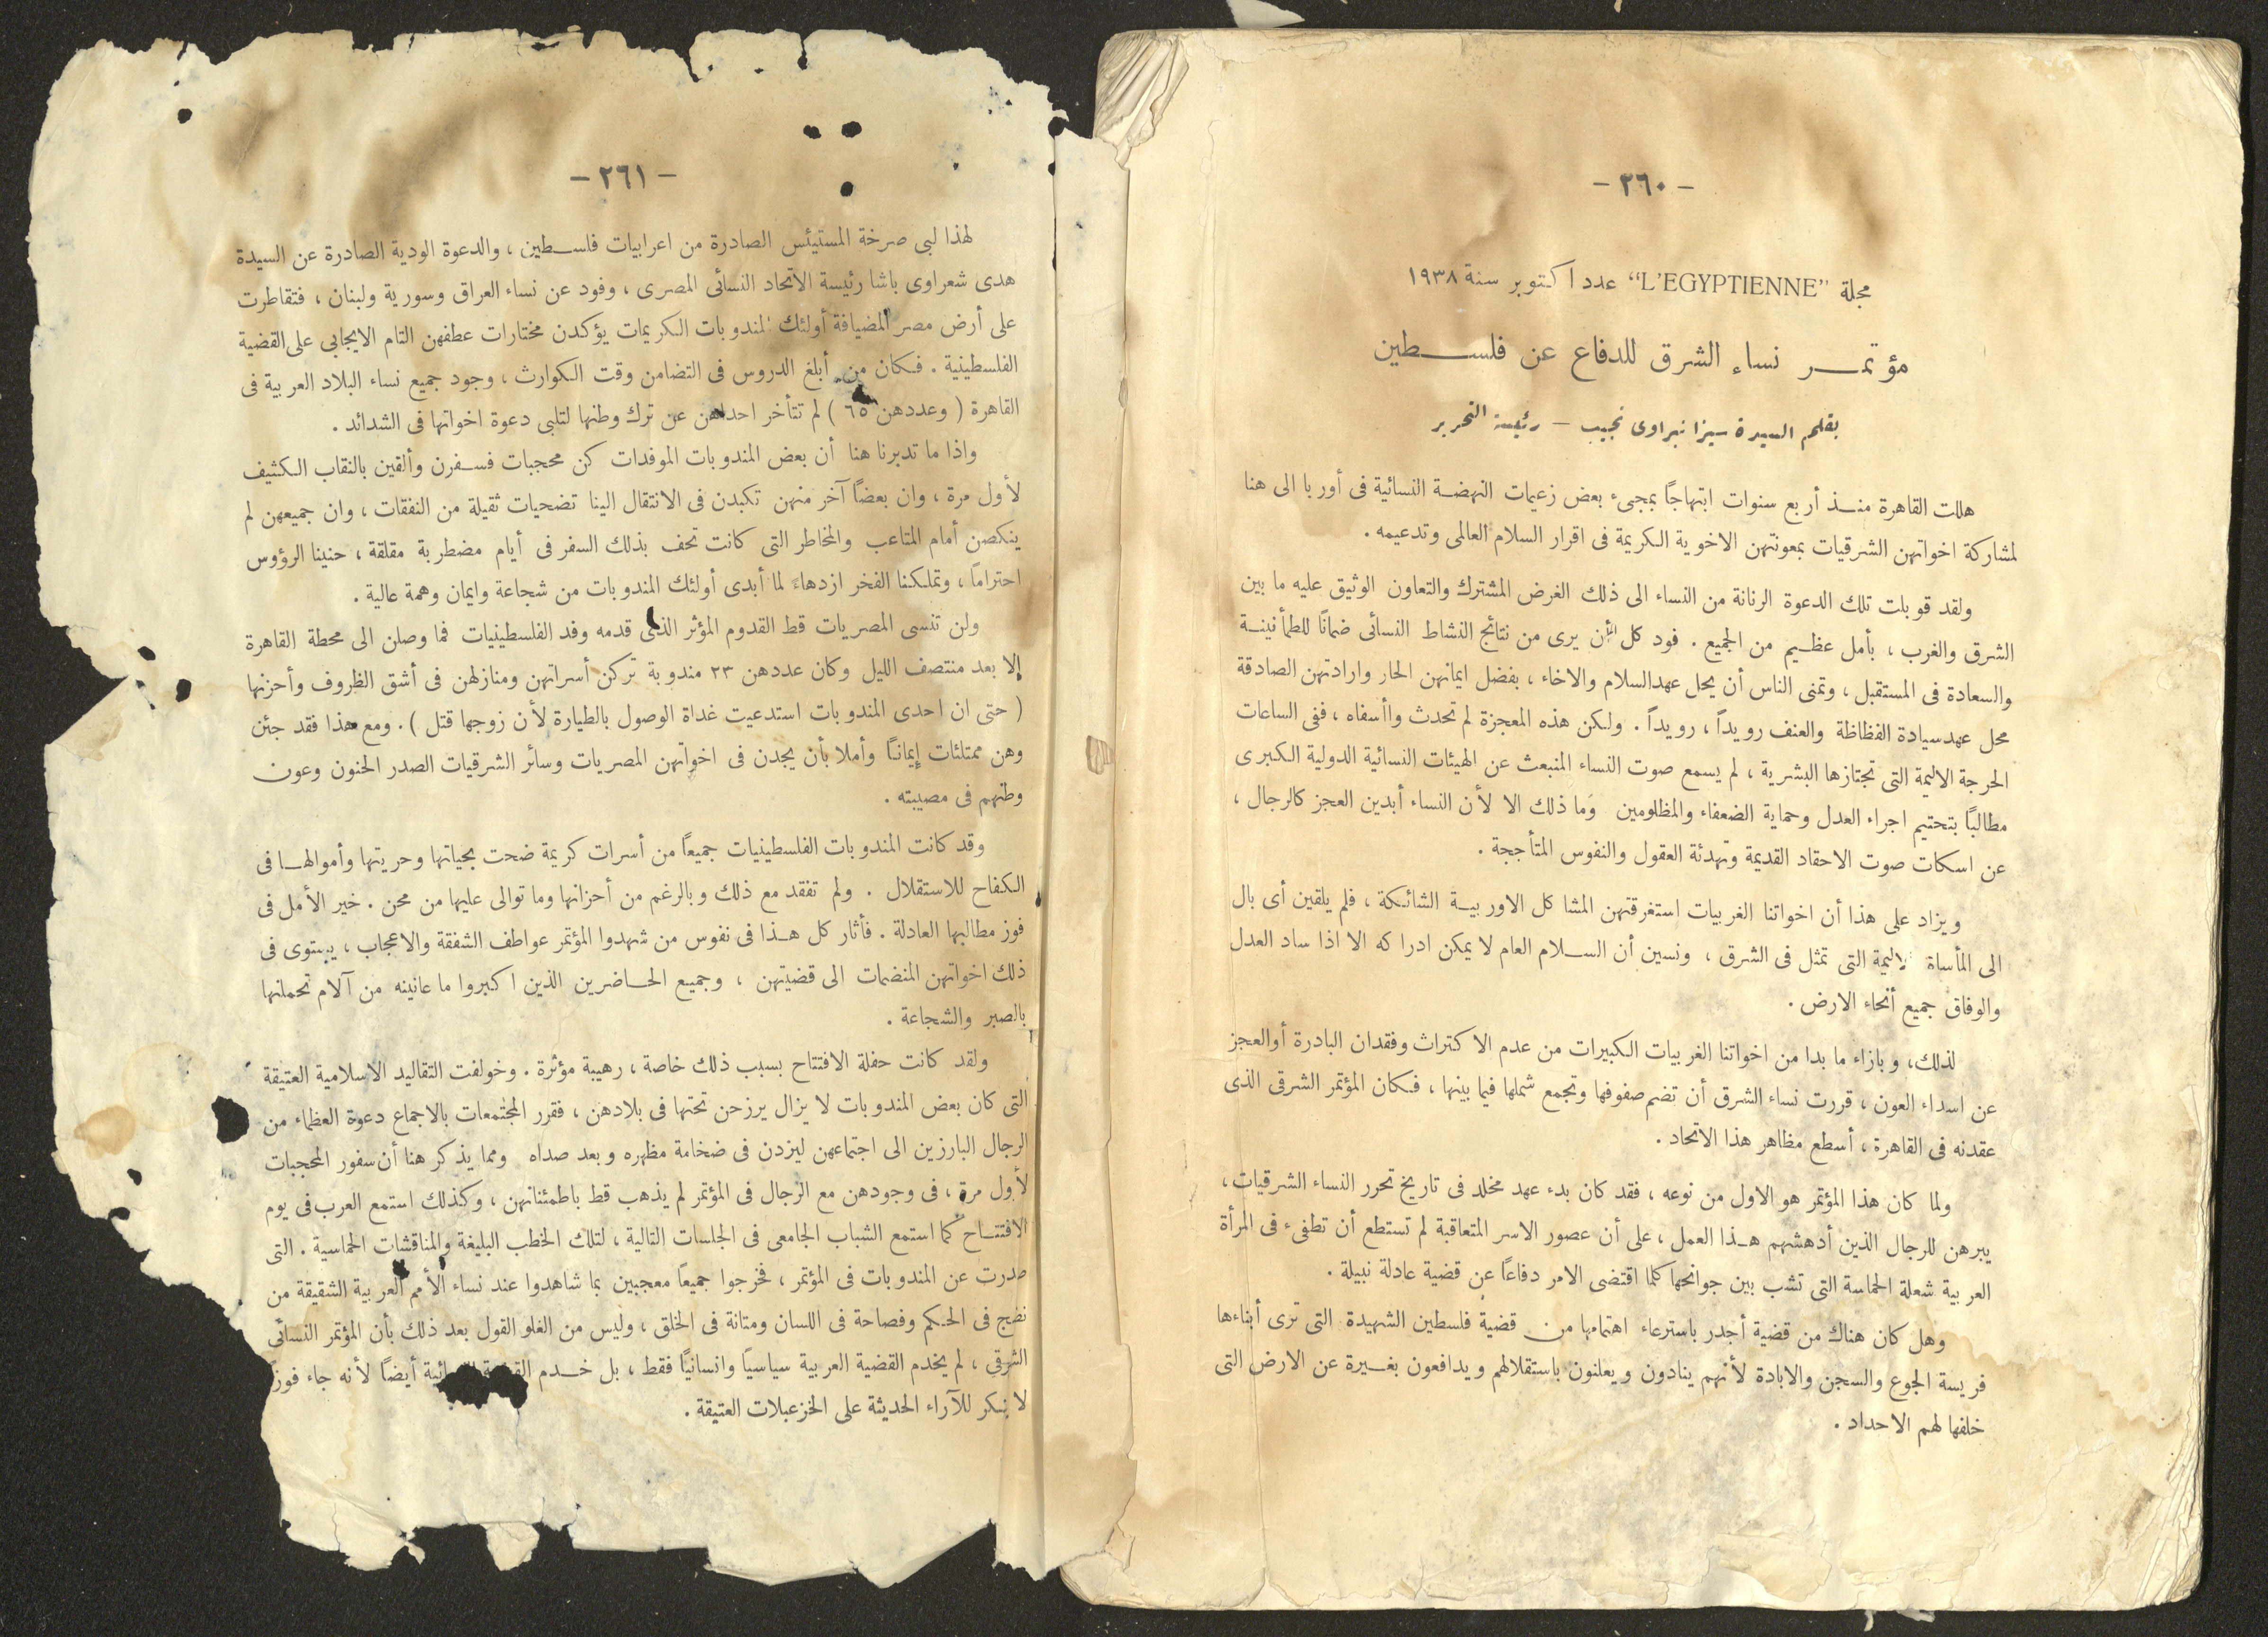 - ٢٦٠ -
مجلة "L'EGYPTIENNE" عدد اكتوبر سنة ١٩٣٨
مؤتمر نساء الشرق للدفاع عن فلسطين
بقلم السيدة سيزا نبراوى نجيب - رئيسة التحرير
هللت القاهرة منذ أربع سنوات ابتهاجاً بمجىء بعض زعيمات النهضة النسائية فى أوربا الى هنا
لمشاركة اخواتهن الشرقيات بمعونتهن الاخوية الكريمة فى اقرار السلام العالمى وتدعيمه .
ولقد قوبلت تلك الدعوة الرنانة من النساء الى ذلك الغرض المشترك والتعاون الوثيق عليه ما بين
الشرق والغرب ، بأمل عظيم من الجميع . فود كل أن يرى من نتائج النشاط النسائى ضماناً للطمأنينة
والسعادة فى المستقبل ، وتمنى الناس أن يحل عهد السلام والاخاء ، بفضل ايمانهن الحار وارادتهن الصادقة
محل عهد سيادة الفظاظة والعنف رويداً ، رويداً . ولكن هذه المعجزة لم تحدث واأسفاه ، ففى الساعات
الحرجة الاليمة التى تجتازها البشرية ، لم يسمع صوت النساء المنبعث عن الهيئات النسائية الدولية الكبرى
مطالباً بتحتيم اجراء العدل وحماية الضعفاء والمظلومين وما ذلك الا لأن النساء أبدين العجز كالرجال ،
عن اسكات صوت الاحقاد القديمة وتهدئة العقول والنفوس المتأججة .
ويزاد على هذا أن اخواتنا الغربيات استغرقتهن المشاكل الاوربية الشائكة ، فلم يلقين أى بال
الى المأساة الاليمة التى تمثل فى الشرق ، ونسين أن السلام العام لا يمكن ادراكه الا اذا ساد العدل
والوفاق جميع أنحاء الارض .
لذلك، وبازاء ما بدا من اخواتنا الغربيات الكبيرات من عدم الاكتراث وفقدان البادرة أوالعجز
عن اسداء العون ، قررت نساء الشرق أن تضم صفوفها وتجمع شملها فيما بينها ، فكان المؤتمر الشرقى الذى
عقدنه فى القاهرة ، أسطع مظاهر هذا الاتحاد .
ولما كان هذا المؤتمر هو الاول من نوعه ، فقد كان بدء عهد مخلد فى تاريخ تحرر النساء الشرقيات ،
يبرهن للرجال الذين أدهشهم هذا العمل ، على أن عصور الاسر المتعاقبة لم تستطع أن تطفىء فى المرأة
العربية شعلة الحماسة التى تشب بين جوانحها كلما اقتضى الامر دفاعاً عن قضية عادلة نبيلة .
وهل كان هناك من قضية أجدر باسترعاء اهتمامها من قضية فلسطين الشهيدة التى ترى أبناءها
فريسة الجوع والسجن والابادة لأنهم ينادون ويعلنون باستقلالهم ويدافعون بغيرة عن الارض التى
خلفها لهم الاجداد .
- ٢٦١ -
لهذا لبى صرخة المستيئس الصادرة من اعرابيات فلسطين ، والدعوة الودية الصادرة عن السيدة
هدى شعراوى باشا رئيسة الاتحاد النسائى المصرى ، وفود عن نساء العراق وسورية ولبنان ، فتقاطرت
على أرض مصر المضيافة أولئك المندوبات الكريمات يؤكدن مختارات عطفهن التام الايجابى على القضية
الفلسطينية . فكان من أبلغ الدروس فى التضامن وقت الكوارث ، وجود جميع نساء البلاد العربية فى
القاهرة ( وعددهن ٦٥ ) لم تتأخر احداهن عن ترك وطنها لتلبى دعوة اخواتها فى الشدائد .
واذا ما تدبرنا هنا أن بعض المندوبات الموفدات كن محجبات فسفرن وألقين بالنقاب الكثيف
لأول مرة ، وان بعضاً آخر منهن تكبدن فى الانتقال الينا تضحيات ثقيلة من النفقات ، وان جميعهن لم
ينكصن أمام المتاعب والمخاطر التى كانت تحف بذلك السفر فى أيام مضطربة مقلقة ، حنينا الرؤوس
احتراماً ، وتملكنا الفخر ازدهاءً لما أبدى أولئك المندوبات من شجاعة وايمان وهمة عالية .
ولن تنسى المصريات قط القدوم المؤثر الذى قدمه وفد الفلسطينيات فما وصلن الى محطة القاهرة
إلا بعد منتصف الليل وكان عددهن ٢٣ مندوبة تركن أسراتهن ومنازلهن فى أشق الظروف وأحزنها
( حتى ان احدى المندوبات استدعيت غداة الوصول بالطيارة لأن زوجها قتل ) . ومع هذا فقد جئن
وهن ممتلئات إيماناً وأملا بأن يجدن فى اخواتهن المصريات وسائر الشرقيات الصدر الحنون وعون
وطنهم فى مصيبته .
وقد كانت المندوبات الفلسطينيات جميعاً من أسرات كريمة ضحت بحياتها وحريتها وأموالها فى
الكفاح للاستقلال . ولم تفقد مع ذلك وبالرغم من أحزانها وما توالى عليها من محن . خير الأمل فى
فوز مطالبها العادلة . فأثار كل هذا فى نفوس من شهدوا المؤتمر عواطف الشفقة والاعجاب ، يستوى فى
ذلك اخواتهن المنضمات الى قضيتهن ، وجميع الحاضرين الذين اكبروا ما عانينه من آلام تحملنها
بالصبر والشجاعة .
ولقد كانت حفلة الافتتاح بسبب ذلك خاصة ، رهيبة مؤثرة . وخولفت التقاليد الاسلامية العتيقة
التى كان بعض المندوبات لا يزال يرزحن تحتها فى بلادهن ، فقرر المجتمعات بالاجماع دعوة العظماء من
الرجال البارزين الى اجتماعهن ليزدن فى ضخامة مظهره وبعد صداه ومما يذكر هنا أن سفور المحجبات
لأول مرة ، فى وجودهن مع الرجال فى المؤتمر لم يذهب قط باطمئنانهن ، وكذلك استمع العرب فى يوم
الافتتاح كما استمع الشباب الجامعى فى الجلسات التالية ، لتلك الخطب البليغة والمناقشات الحماسية . التى
صدرت عن المندوبات فى المؤتمر ، فخرجوا جميعاً معجبين بما شاهدوا عند نساء الأمم العربية الشقيقة من
نضج فى الحكم وفصاحة فى اللسان ومتانة فى الخلق ، وليس من الغلو القول بعد ذلك بأن المؤتمر النسائى
الشرقى ، لم يخدم القضية العربية سياسياً وانسانياً فقط ، بل خدم أيضاً لأنه جاء فوزاً
لا ينكر للآراء الحديثة على الخزعبلات العتيقة .